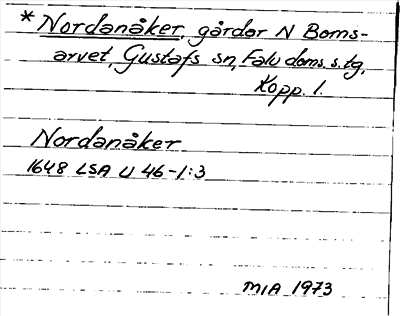 * Nordanåker, gårdar N Boms-
arvet, Gustafs sn, Falu doms. s. tg,
Kopp. l.
Nordanåker
1648 LSA U 46-1:3
MIA 1973